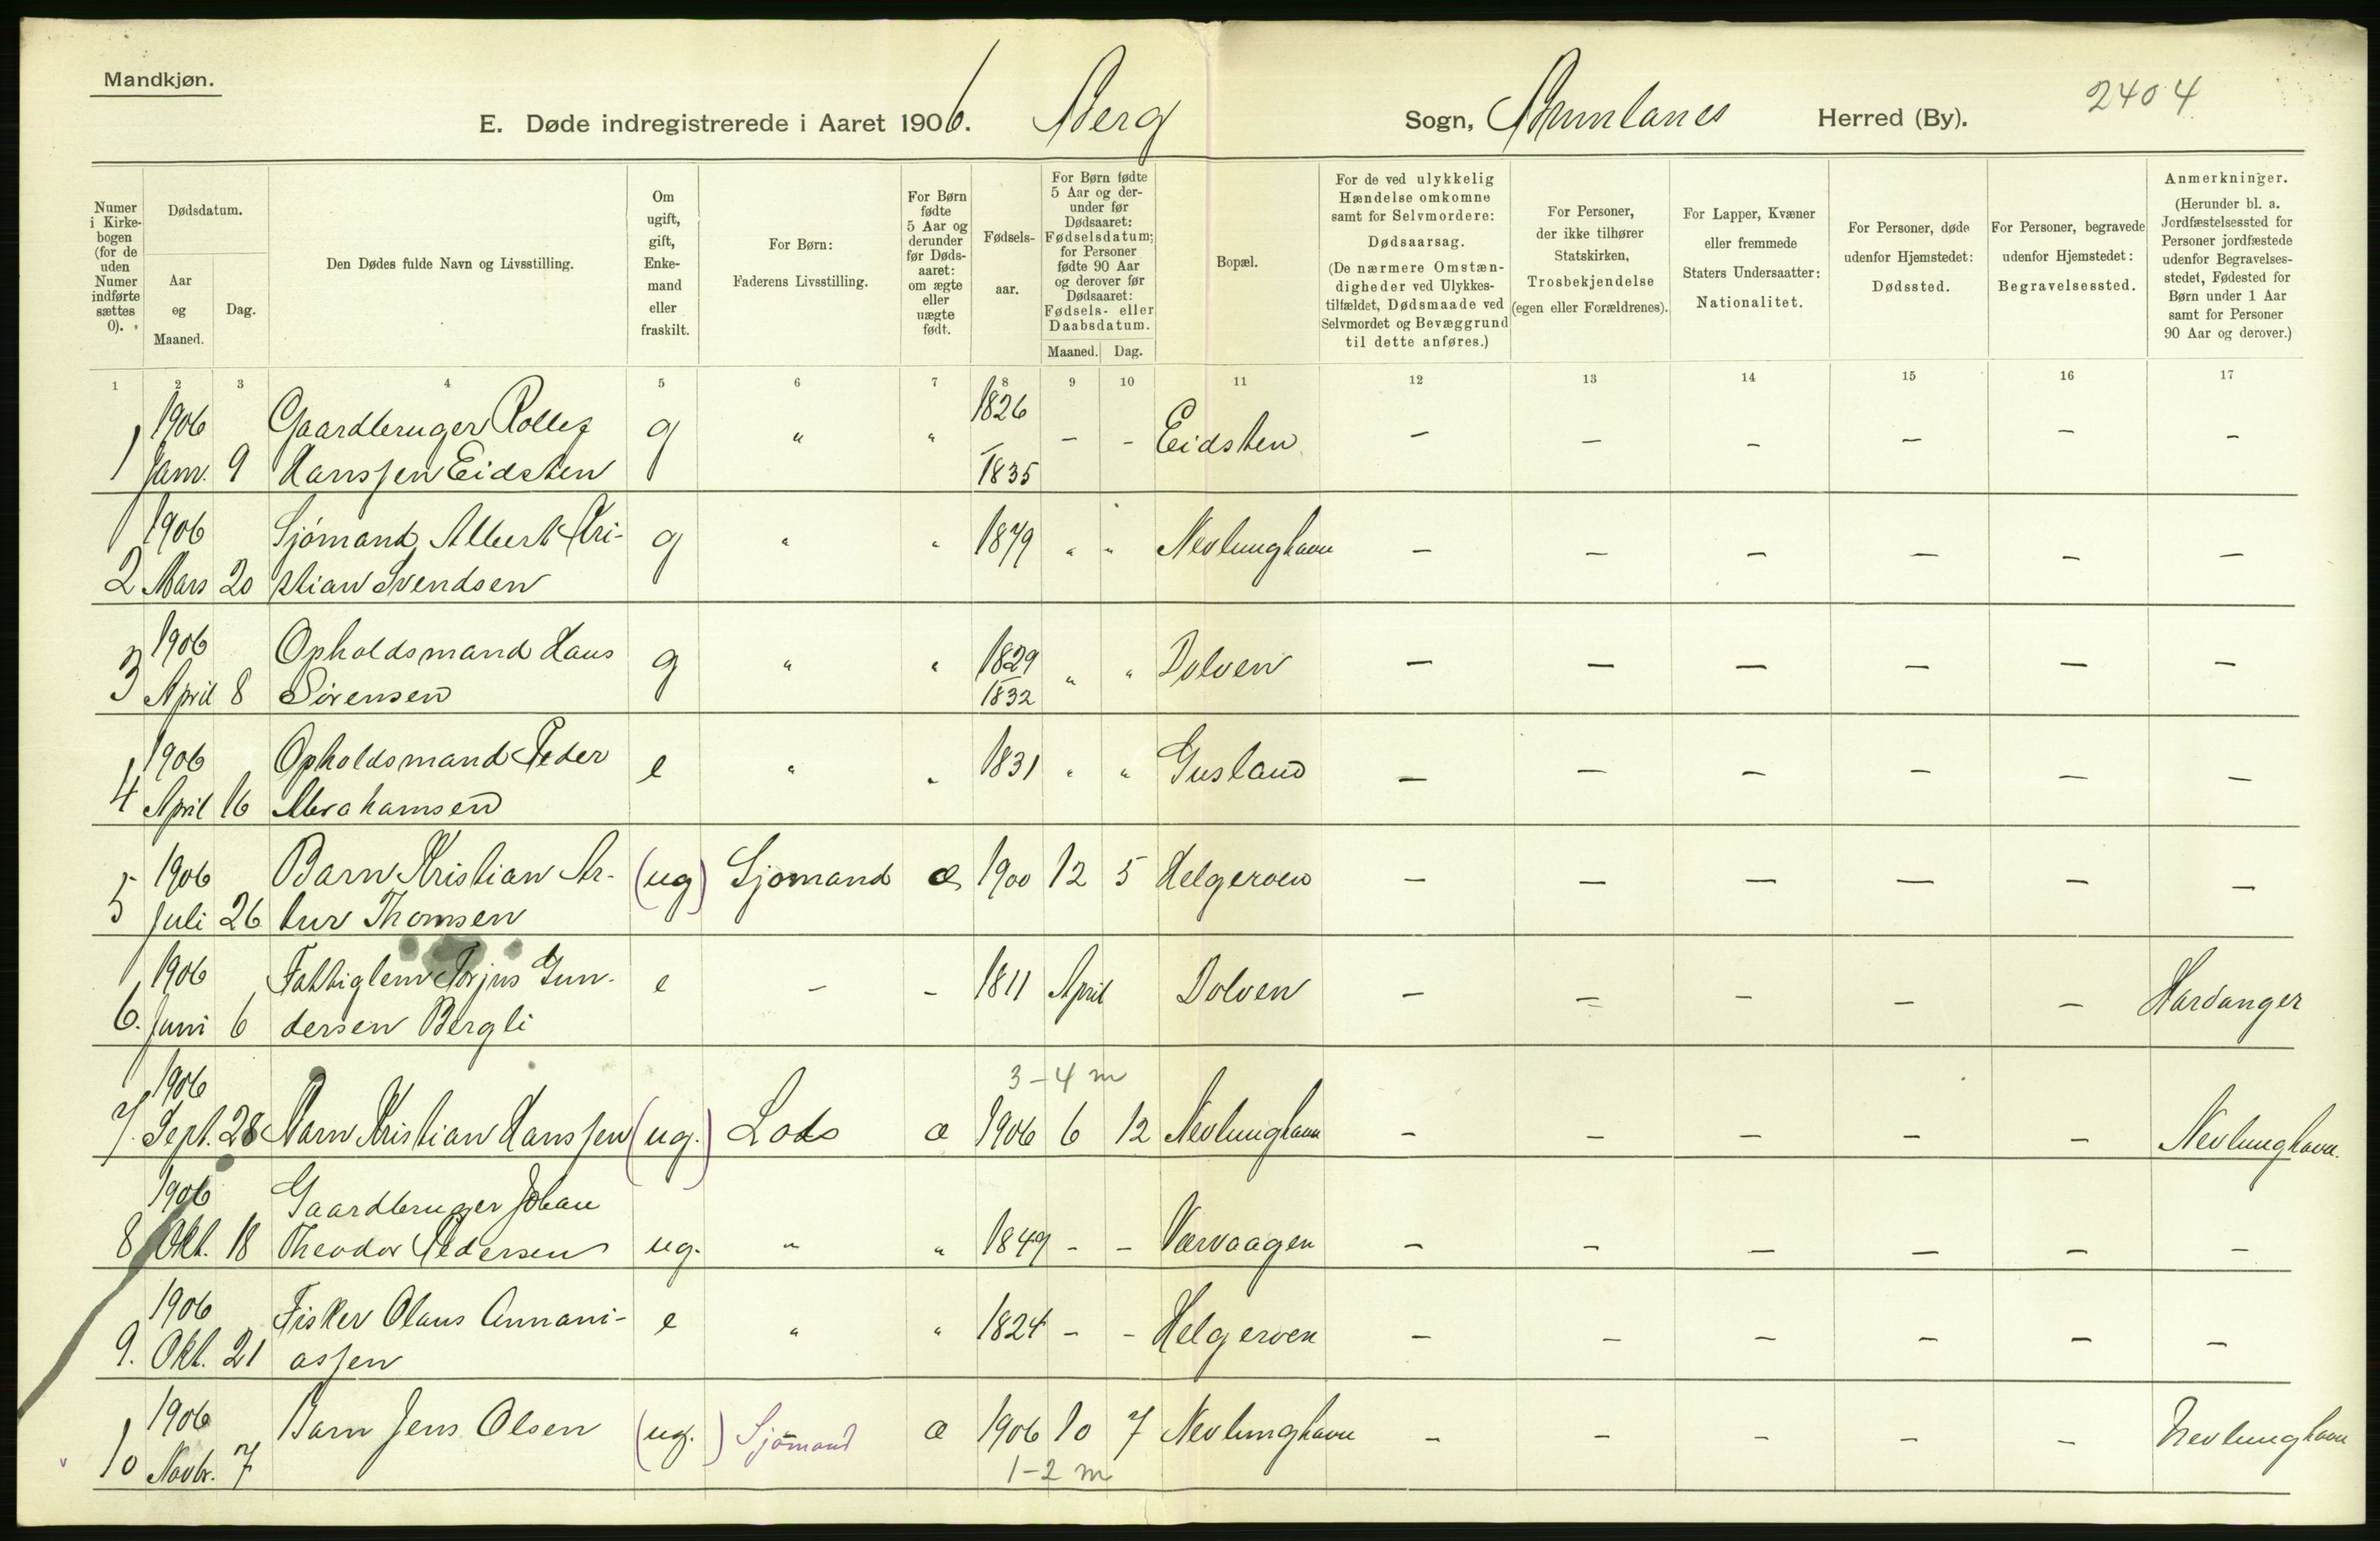 Mandkjøn.
E. Døde indregistrerede i Aaret 1906. Berg Sogn, Brunlanes Herred (By). 2404
Numer i Kirke-bogen (for de uden Numer indførte sættes 0).
Dødsdatum.
Aar og Maaned.
Dag.
Den Dødes fulde Navn og Livsstilling.
Om ugift, gift, Enke-mand eller fraskilt.
For Børn:
Faderens Livsstilling.
For Børn fødte 5 Aar og derunder før Døds-aaret: om ægte eller uægte født.
Fødsels-aar.
For Børn fødte 5 Aar og der-under før Dødsaaret: Fødselsdatum; for Personer fødte 90 Aar og derover før Dødsaaret: Fødsels- eller Daabsdatum.
Maaned. Dag.
Bopæl.
For de ved ulykkelig Hændelse omkomne samt for Selvmordere:
Dødsaarsag.
(De nærmere Omstæn-digheder ved Ulykkes-tilfældet, Dødsmaade ved Selvmordet og Bevæggrund til dette anføres.)
For Personer, der ikke tilhører Statskirken,
Trosbekjendelse
(egen eller Forældrenes).
For Lapper, Kvæner eller fremmede Staters Undersaatter:
Nationalitet.
For Personer, døde udenfor Hjemstedet:
Dødssted.
For Personer, begravede udenfor Hjemstedet:
Begravelsessted.
Anmerkninger.
(Herunder bl. a. Jordfæstelsessted for Personer jordfæstede udenfor Begravelses-stedet, Fødested for Børn under 1 Aar samt for Personer 90 Aar og derover.)
1 2 3 4 5 6 7 8 9 10 11 12 13 14 15 16 17
1906 Gaardbruger Rollef g " " 1826 - - Eidsten - - - - - -
1 Janr. 9 Hanssen Eidsten 1835
1906 Sjömand Albert Kri- g " " 1879 " " Nevlunghavn - - - - - -
2 Mars 20 stian Svendsen
1906 Opholdsmand Hans g " " 1829 " " Dolven - - - - - -
3 April 8 Sörensen 1832
1906 Opholdsmand Peder e " " 1831 " " Gusland - - - - - -
4 April 16 Abrahamsen
1906 Barn Kristian Ar- (ug) Sjomand æ 1900 12 5 Helgeroen - - - - - -
5 Juli 26 tur Thomsen
1906 Fattiglem Torjus Gun- e - - 1811 April Dolven - - - - - Hardanger
6. Juni 6 dersen Bergli
1906 3-4 m
7. Sept. 28 Barn Kristian Hanssen (ug.) Lods æ 1906 6 12 Nevlunghavn - - - - - Nevlunghavn.
1906 Gaardbruger Johan
8 Okt. 18 Theodor Pedersen ug. " " 1849 - - Værvaagen - - - - - -
1906 Fisker Olaus Annani- e " " 1824 - - Helgeroen - - - - - -
9. Okt. 21 assen
1906 Barn Jens Olsen (ug.) Sjömand æ 1906 10 7 Nevlunghavn - - - - - Nevlunghavn
10 Novbr. 7 1-2 m